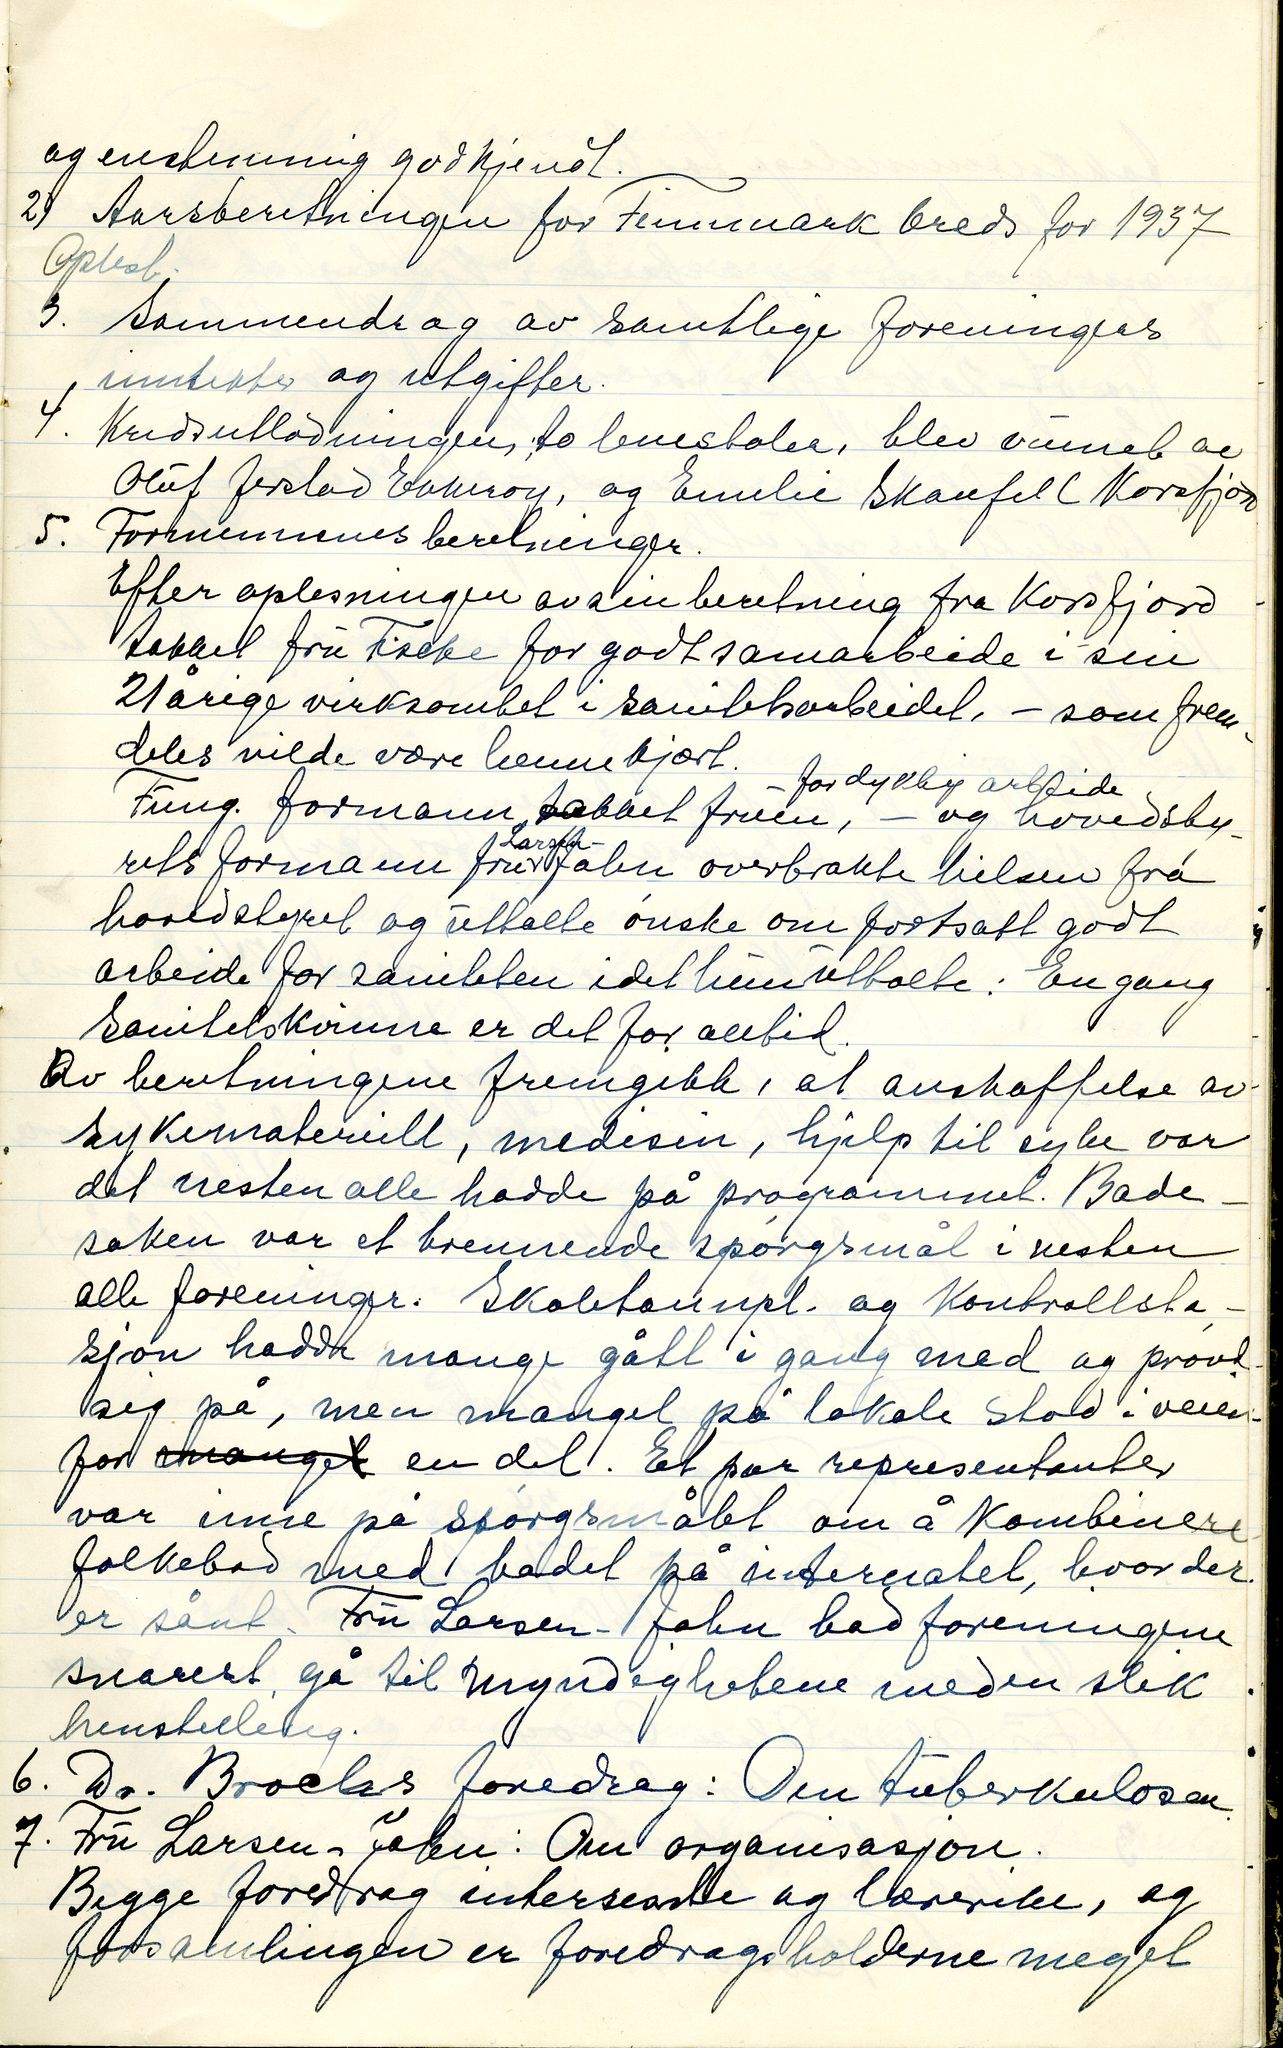 og enstemmig godkjendt.
2) Aarsberetningen for Finnmark Creds for 1937
Oplest.
3. Sammendrag av samtlige foreningers
inntekter og utgifter.
4. Kredsutlodningen, to lenestoler, blev vunnet av
Oluf Jerstad Ekkerøy, og Emilie Skanfell Korsfjord
5. Formennenes beretninger.
Efter oplesningen av sin beretning fra Korsfjord
takket fru Fiske for godt samarbeide i sin
21 årige virksomhet i sanitetsarbeidet, – som frem-
deles vilde være henne kjært.
for dyktig arbeide
Fung. formann takket fruen, – og hovedsty-
Larsen-
rets formann fru Jahn overbrakte hilsen fra
hovedstyret og uttalte ønske om fortsatt godt
arbeide for saniteten idet hun uttalte: En gang
Sanitetskvinne er det for alltid.
Av beretningene fremgikk, at anskaffelse av
sykemateriell, medisin, hjelp til syke var
det nesten alle hadde på programmet. Bade-
saken var et brennende spørgsmål i nesten
alle foreninger. Skoletannpl. og Kontrollsta-
sjon hadde mange gått i gang med og prøvd
sig på, men mangel på lokale stod i veien
for mangel en del. Et par representanter
var inne på spørgsmålet om å Kombinere
folkebad med badet på internatet, hvor der
er sånt. Fru Larsen-Jahn bad foreningene
snarest gå til myndighetene med en slik
henstilling.
6. Dr. Brochs foredrag: Om tuberkulosen.
7. Fru Larsen-Jahn: Om organisasjon.
Begge foredrag interesante og lærerike, og
forsamlingen er foredragsholderne meget